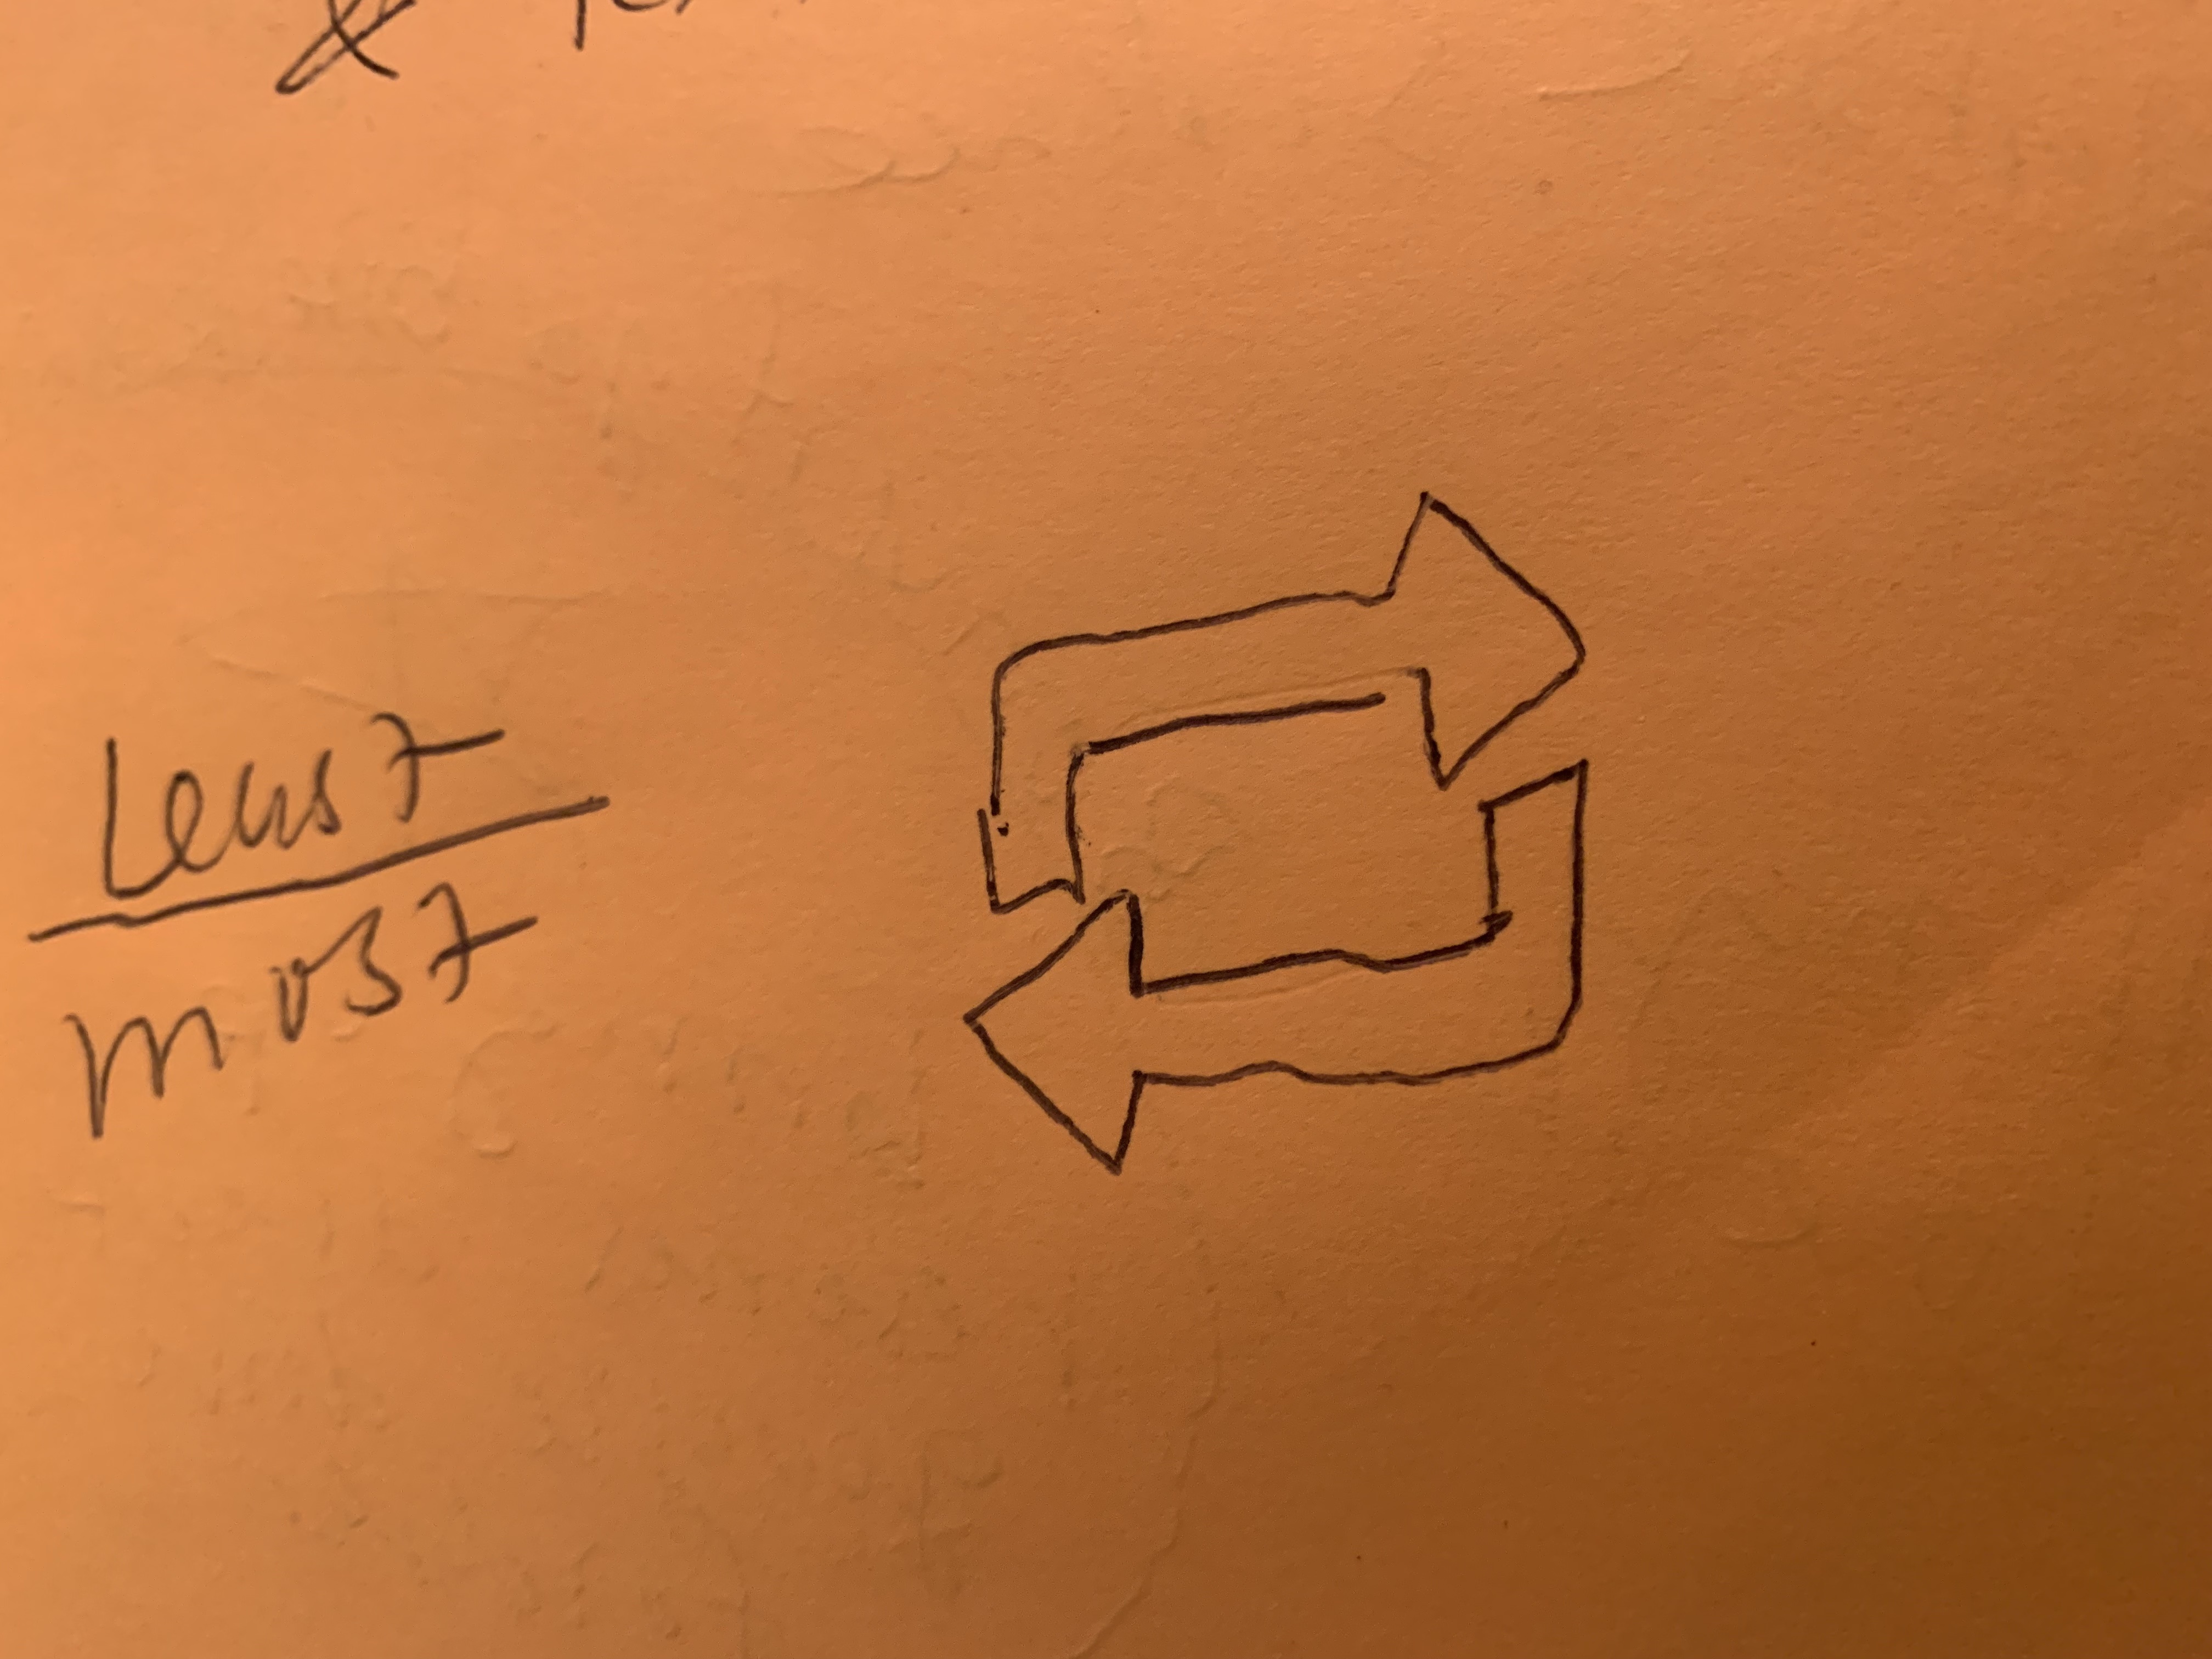 Least
most